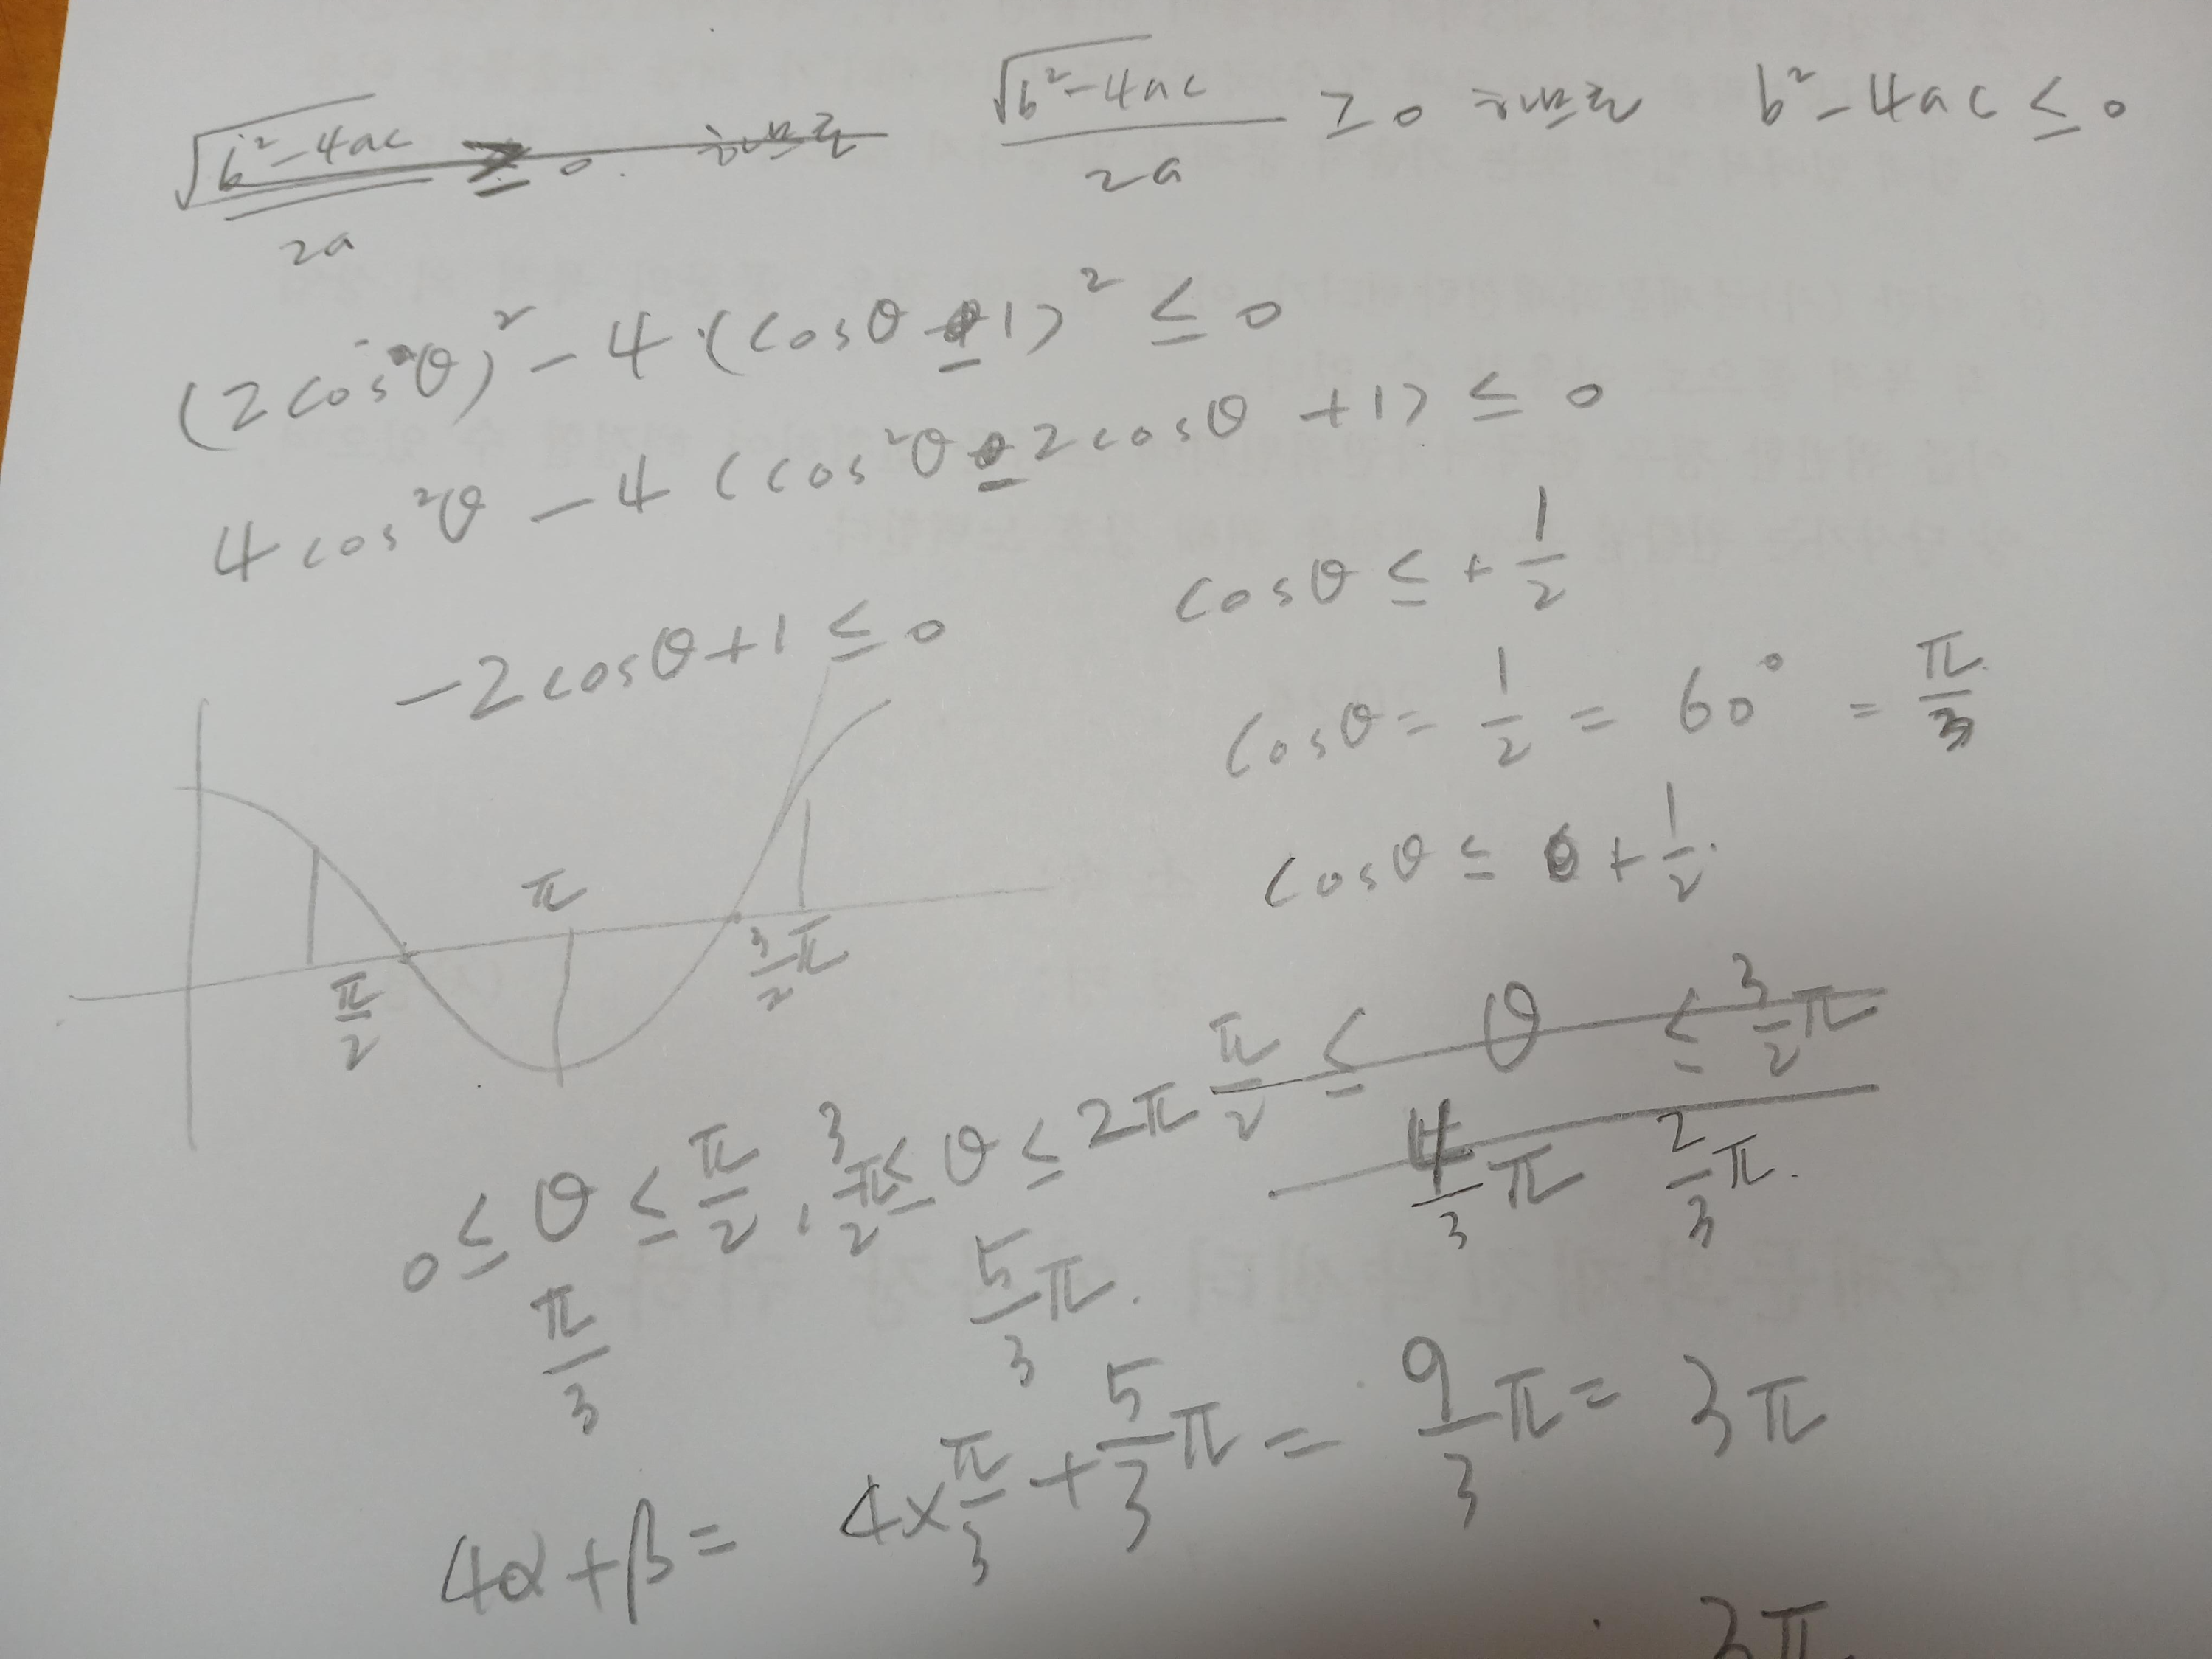 √(b²-4ac)/2a ≥ 0 하므로
√(b²-4ac)/2a ≥ 0 하므로 b²-4ac ≤ 0
(2cosθ)² - 4·(cosθ-1)² ≤ 0
4cos²θ - 4(cos²θ - 2cosθ + 1) ≤ 0
-2cosθ+1 ≤ 0
cosθ ≤ + 1/2
cosθ = 1/2 = 60° = π/3
cosθ ≤ + 1/2.
π/2
π
3/2π
π/2 ≤ θ ≤ 3/2π
4/3π 2/3π.
0 ≤ θ ≤ π/2, 3/2π ≤ θ ≤ 2π
π/3 5/3π.
4α+β = 4×π/3 + 5/3π = 9/3π = 3π
3π